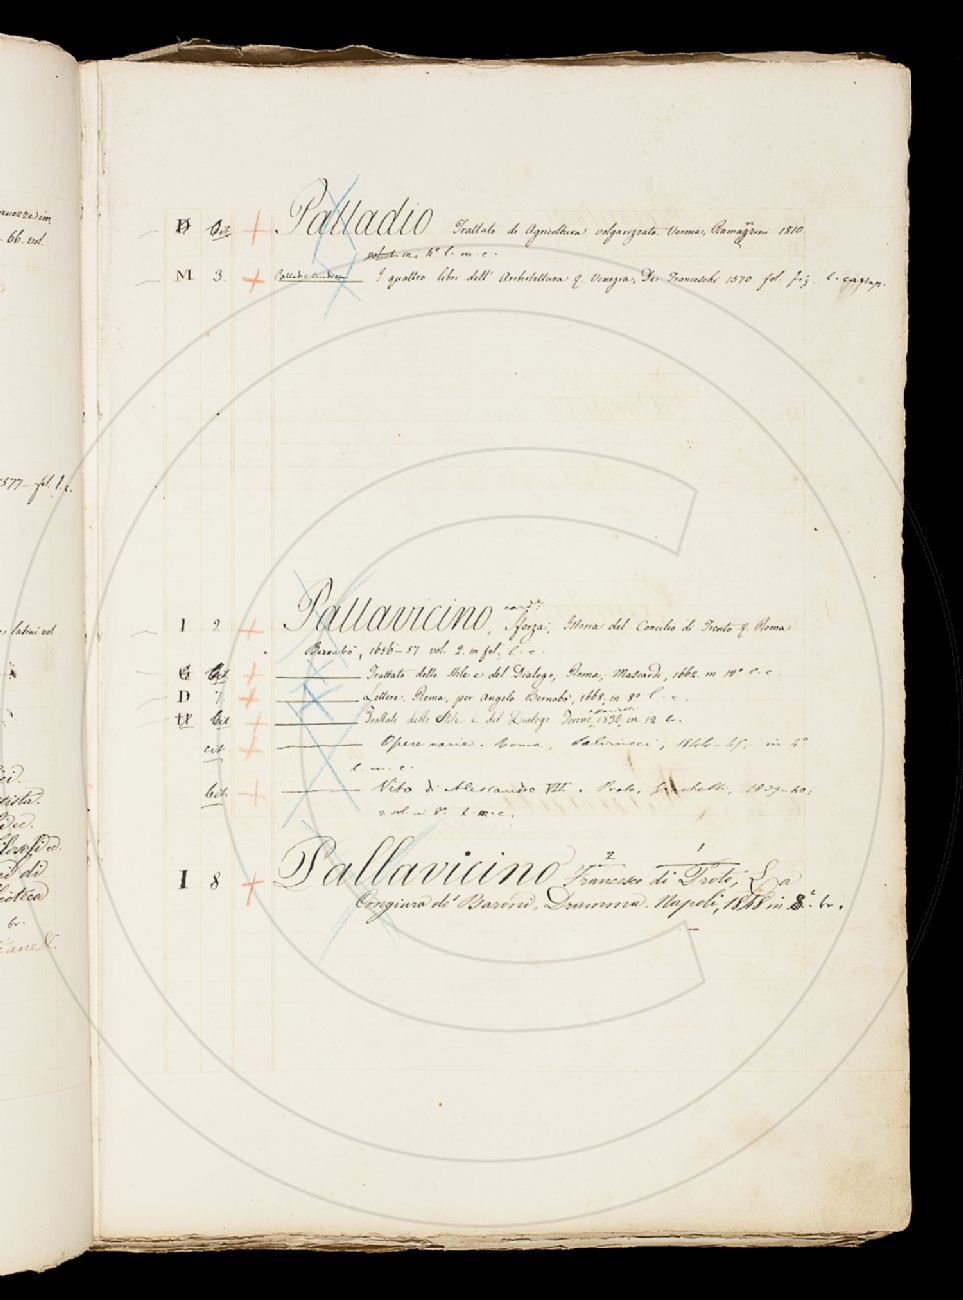 avezze din
66. vol.
1577 - fol. l. c.
latini vol
D Cit. + Palladio Trattato di Agricoltura volgarizzato. Verona, Ramanzini 1810
vol. 1. in 4° l. m. c.
M 3. + Palladio Andrea I quattro libri dell' Architettura &. Venezia, De Franceschi 1570 fol. fig. l. cartap.
I 2 + Pallavicino, card.le Sforza, Istoria del Concilio di Trento &. Roma
Bernabò, 1656-57. vol. 2. in fol. l. c.
G Cit + ——— Trattato dello Stile e del Dialogo, Roma, Mascardi, 1662. in 12° l. c.
D 7 + ——— Lettere. Roma, per Angelo Bernabò, 1668, in 8° l. c.
Cit + ——— Trattato dello Stile e del Dialogo Torino, 1830, in 12 c.
cit + ——— Opere varie. Roma, Salviucci, 1844-45. in 4°
l. m. c.
Cit. + ——— Vita di Alessandro VII. Prato, Giachetti, 1839-40;
2 vol. in 8° l. m. c.
2 1
I 8 + Pallavicino Francesco di Proto, La
Congiura de' Baroni, Dramma. Napoli, 1848 in 8.° br.
tista.
di
lioteca
br.